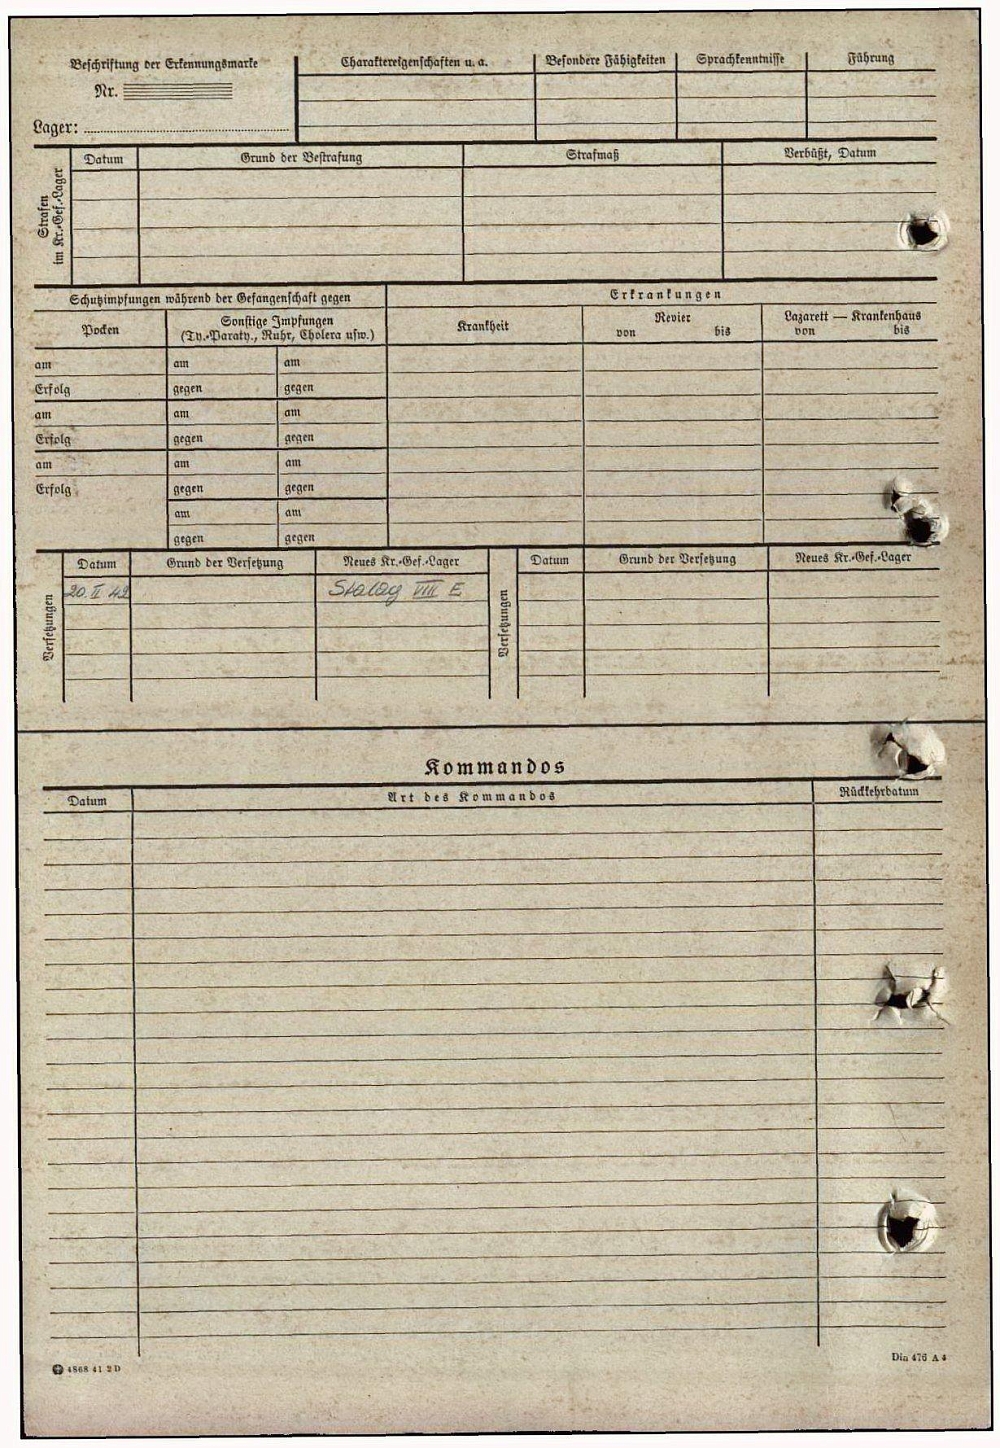 Beschriftung der Erkennungsmarke
Nr.
Lager:
Charaktereigenschaften u. a.
Besondere Fähigkeiten
Sprachkenntnisse
Führung
Strafen
im Kr.-Gef.-Lager
Datum
Grund der Bestrafung
Strafmaß
Verbüßt, Datum
Schutzimpfungen während der Gefangenschaft gegen
Erkrankungen
Pocken
Sonstige Impfungen
(Ty.-Paraty., Ruhr, Cholera usw.)
Krankheit
Revier
von bis
Lazarett — Krankenhaus
von bis
am am am
Erfolg gegen gegen
am am am
Erfolg gegen gegen
am am am
Erfolg gegen gegen
am am
gegen gegen
Versetzungen
Datum Grund der Versetzung Neues Kr.-Gef.-Lager
20. II 42 Stalag VIII E
Versetzungen
Datum Grund der Versetzung Neues Kr.-Gef.-Lager
Kommandos
Datum Art des Kommandos Rückkehrdatum
4868 41 2 D
Din 476 A 4